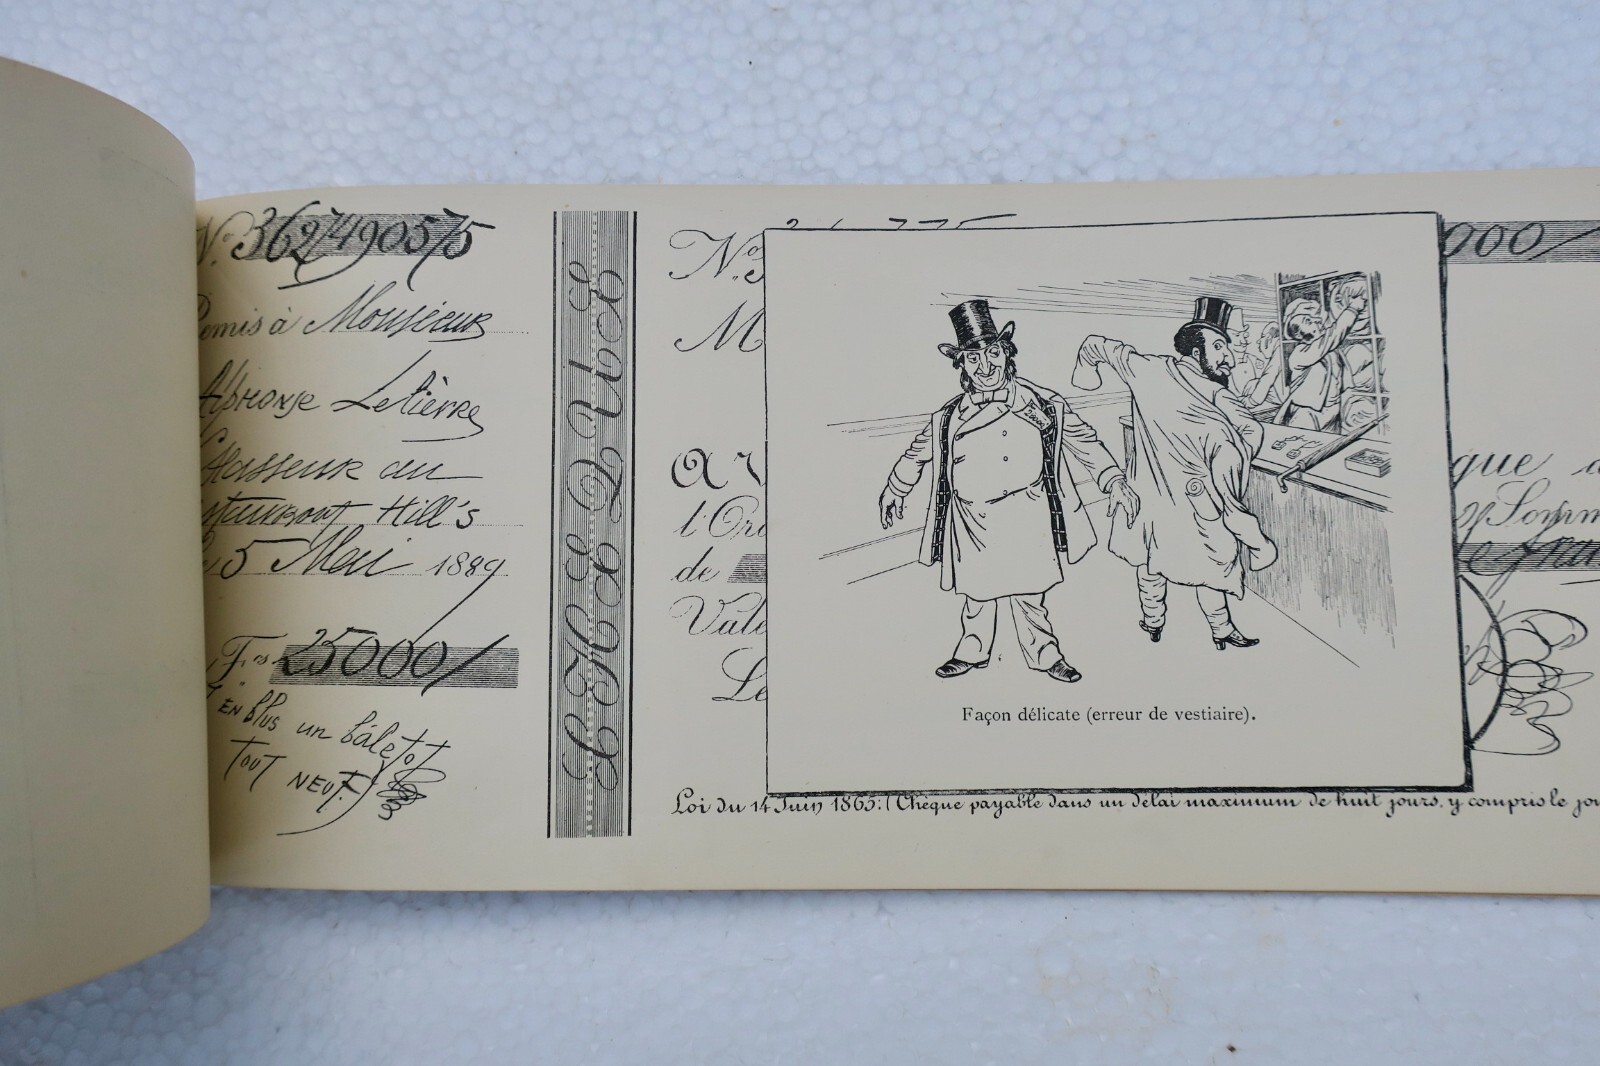 No. 362,490,575
Remis à Monsieur
Alphonse Letièrre
Chasseur au
Hill's
le 5 Mai 1889
Frs 25000/
EN Plus un Paletot
TOUT NEUF.
CHÈQUES
No. 3
M
000/
A V
que
l'Or
de
Fran
Le
Façon délicate (erreur de vestiaire).
Loi du 14 Juin 1865: (Chèque payable dans un délai maximum de huit jours, y compris le jou